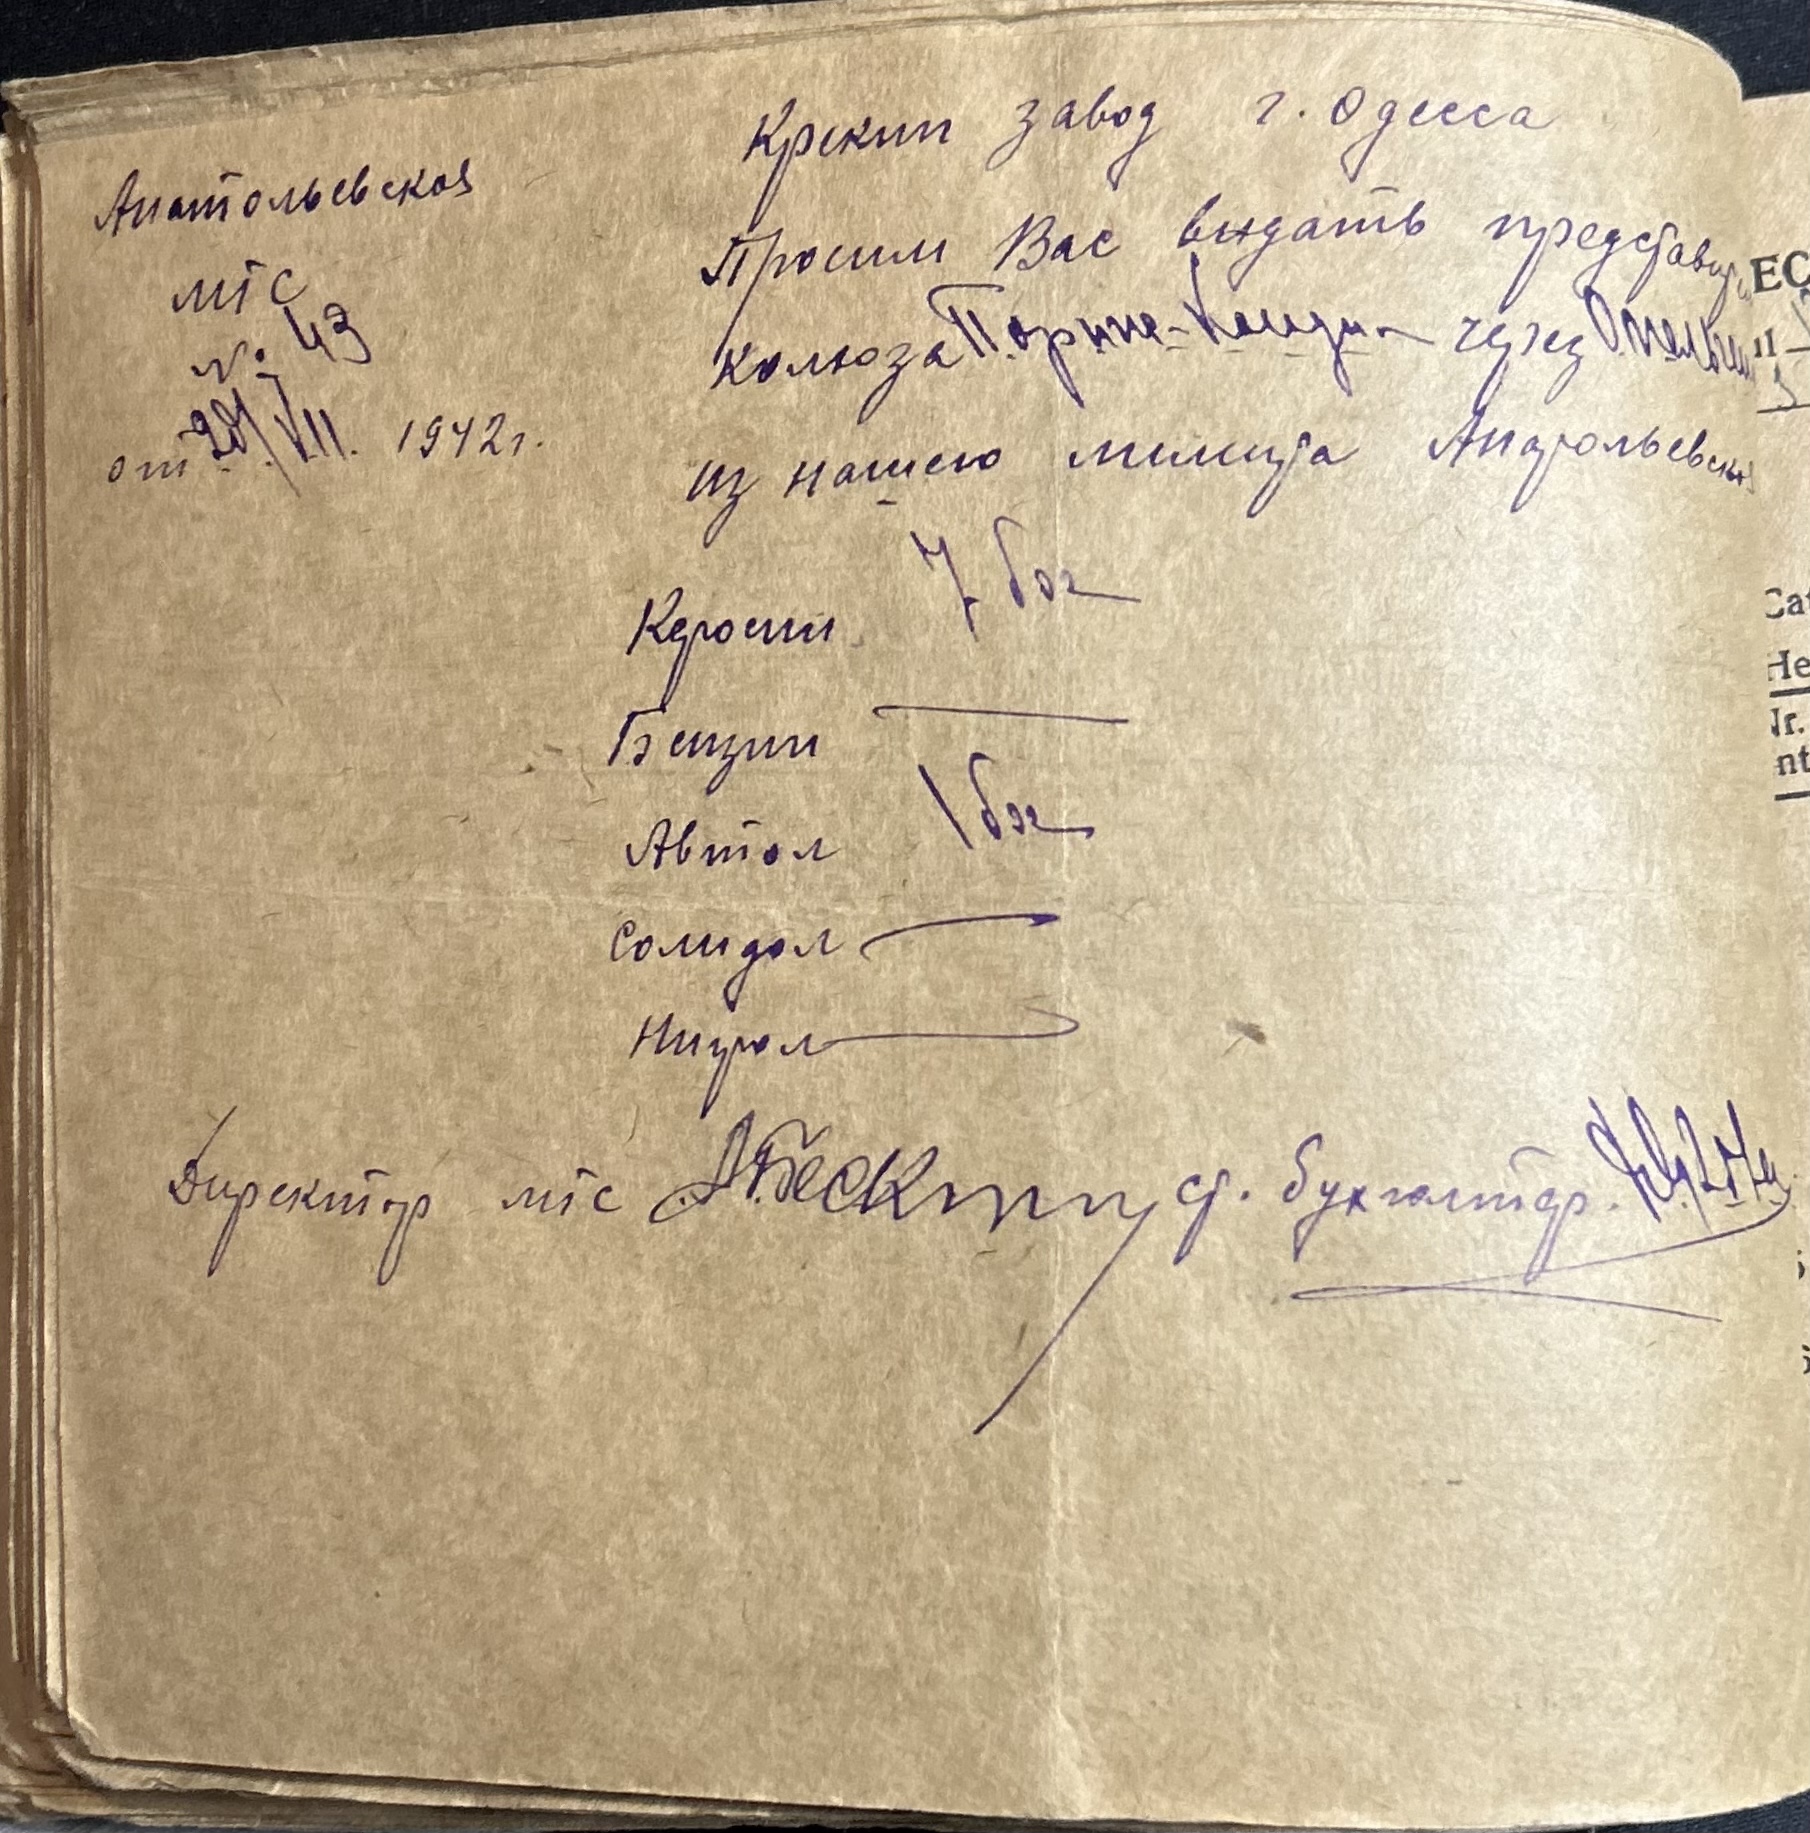 Анатольевская
мтс
№ 43
от 20/VII. 1942 г.
Крекин завод г. Одесса
Просим Вас выдать представит
колхоза через
из нашего лимита Анатольевской
Керосин 7 боч
Бензин —
Автол 1 боч
Солидол —
Нигрол —
Директор мтс ст. бухгалтер.
EC
II
Cat
He
Nr.
nt